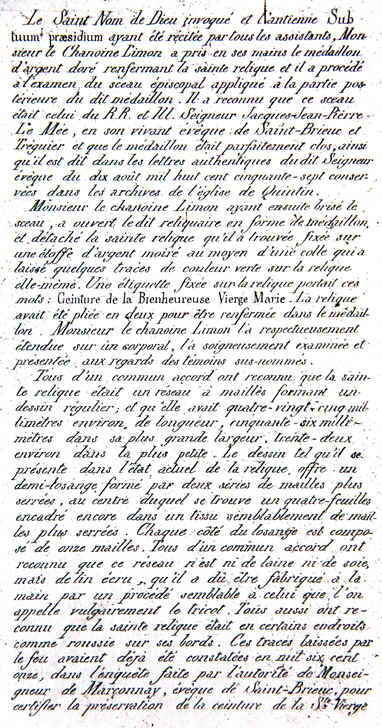 Le Saint Nom de Dieu invoqué et l'antienne Sub
tuum præsidium ayant été récitée par tous les assistants, Mon-
sieur le Chanoine Limon a pris en ses mains le médaillon
d'argent doré renfermant la sainte relique et il a procédé
à l'examen du sceau épiscopal appliqué à la partie pos-
térieure du dit médaillon. Il a reconnu que ce sceau
était celui du R.R. et Ill. Seigneur Jacques-Jean-Pierre-
Le Mée, en son vivant évêque de Saint-Brieuc et
Tréguier et que le médaillon était parfaitement clos, ainsi
qu'il est dit dans les lettres authentiques du dit Seigneur
évêque du dix août mil huit cent cinquante-sept conser-
vées dans les archives de l'église de Quintin.
Monsieur le chanoine Limon ayant ensuite brisé le
sceau, a ouvert le dit reliquaire en forme de médaillon,
et détaché la sainte relique qu'il a trouvée fixée sur
une étoffe d'argent moiré au moyen d'une colle qui a
laissé quelques traces de couleur verte sur la relique
elle-même. Une étiquette fixée sur la relique portait ces
mots: Ceinture de la Bienheureuse Vierge Marie. La relique
avait été pliée en deux pour être renfermée dans le médail-
lon. Monsieur le chanoine Limon l'a respectueusement
étendue sur un corporal, l'a soigneusement examinée et
présentée aux regards des témoins sus-nommés.
Tous d'un commun accord ont reconnu que la sain-
te relique était un réseau à mailles formant un
dessin régulier; et qu'elle avait quatre-vingt-cinq mil-
limètres environ de longueur, cinquante-six milli-
mètres dans sa plus grande largeur, trente-deux
environ dans la plus petite. Le dessin tel qu'il se
présente dans l'état actuel de la relique, offre un
demi-losange formé par deux séries de mailles plus
serrées, au centre duquel se trouve un quatre-feuilles
encadré encore dans un tissu semblablement de mail-
les plus serrées. Chaque côté du losange est compo-
sé de onze mailles. Tous d'un commun accord ont
reconnu que ce réseau n'est ni de laine ni de soie,
mais de lin écru, qu'il a dû être fabriqué à la
main par un procédé semblable à celui que l'on
appelle vulgairement le tricot. Tous aussi ont re-
connu que la sainte relique était en certains endroits
comme roussie sur ses bords. Ces traces laissées par
le feu avaient déjà été constatées en mil six cent
onze, dans l'enquête faite par l'autorité de Monsei-
gneur de Marconnay, évêque de Saint-Brieuc, pour
certifier la préservation de la ceinture de la Ste Vierge